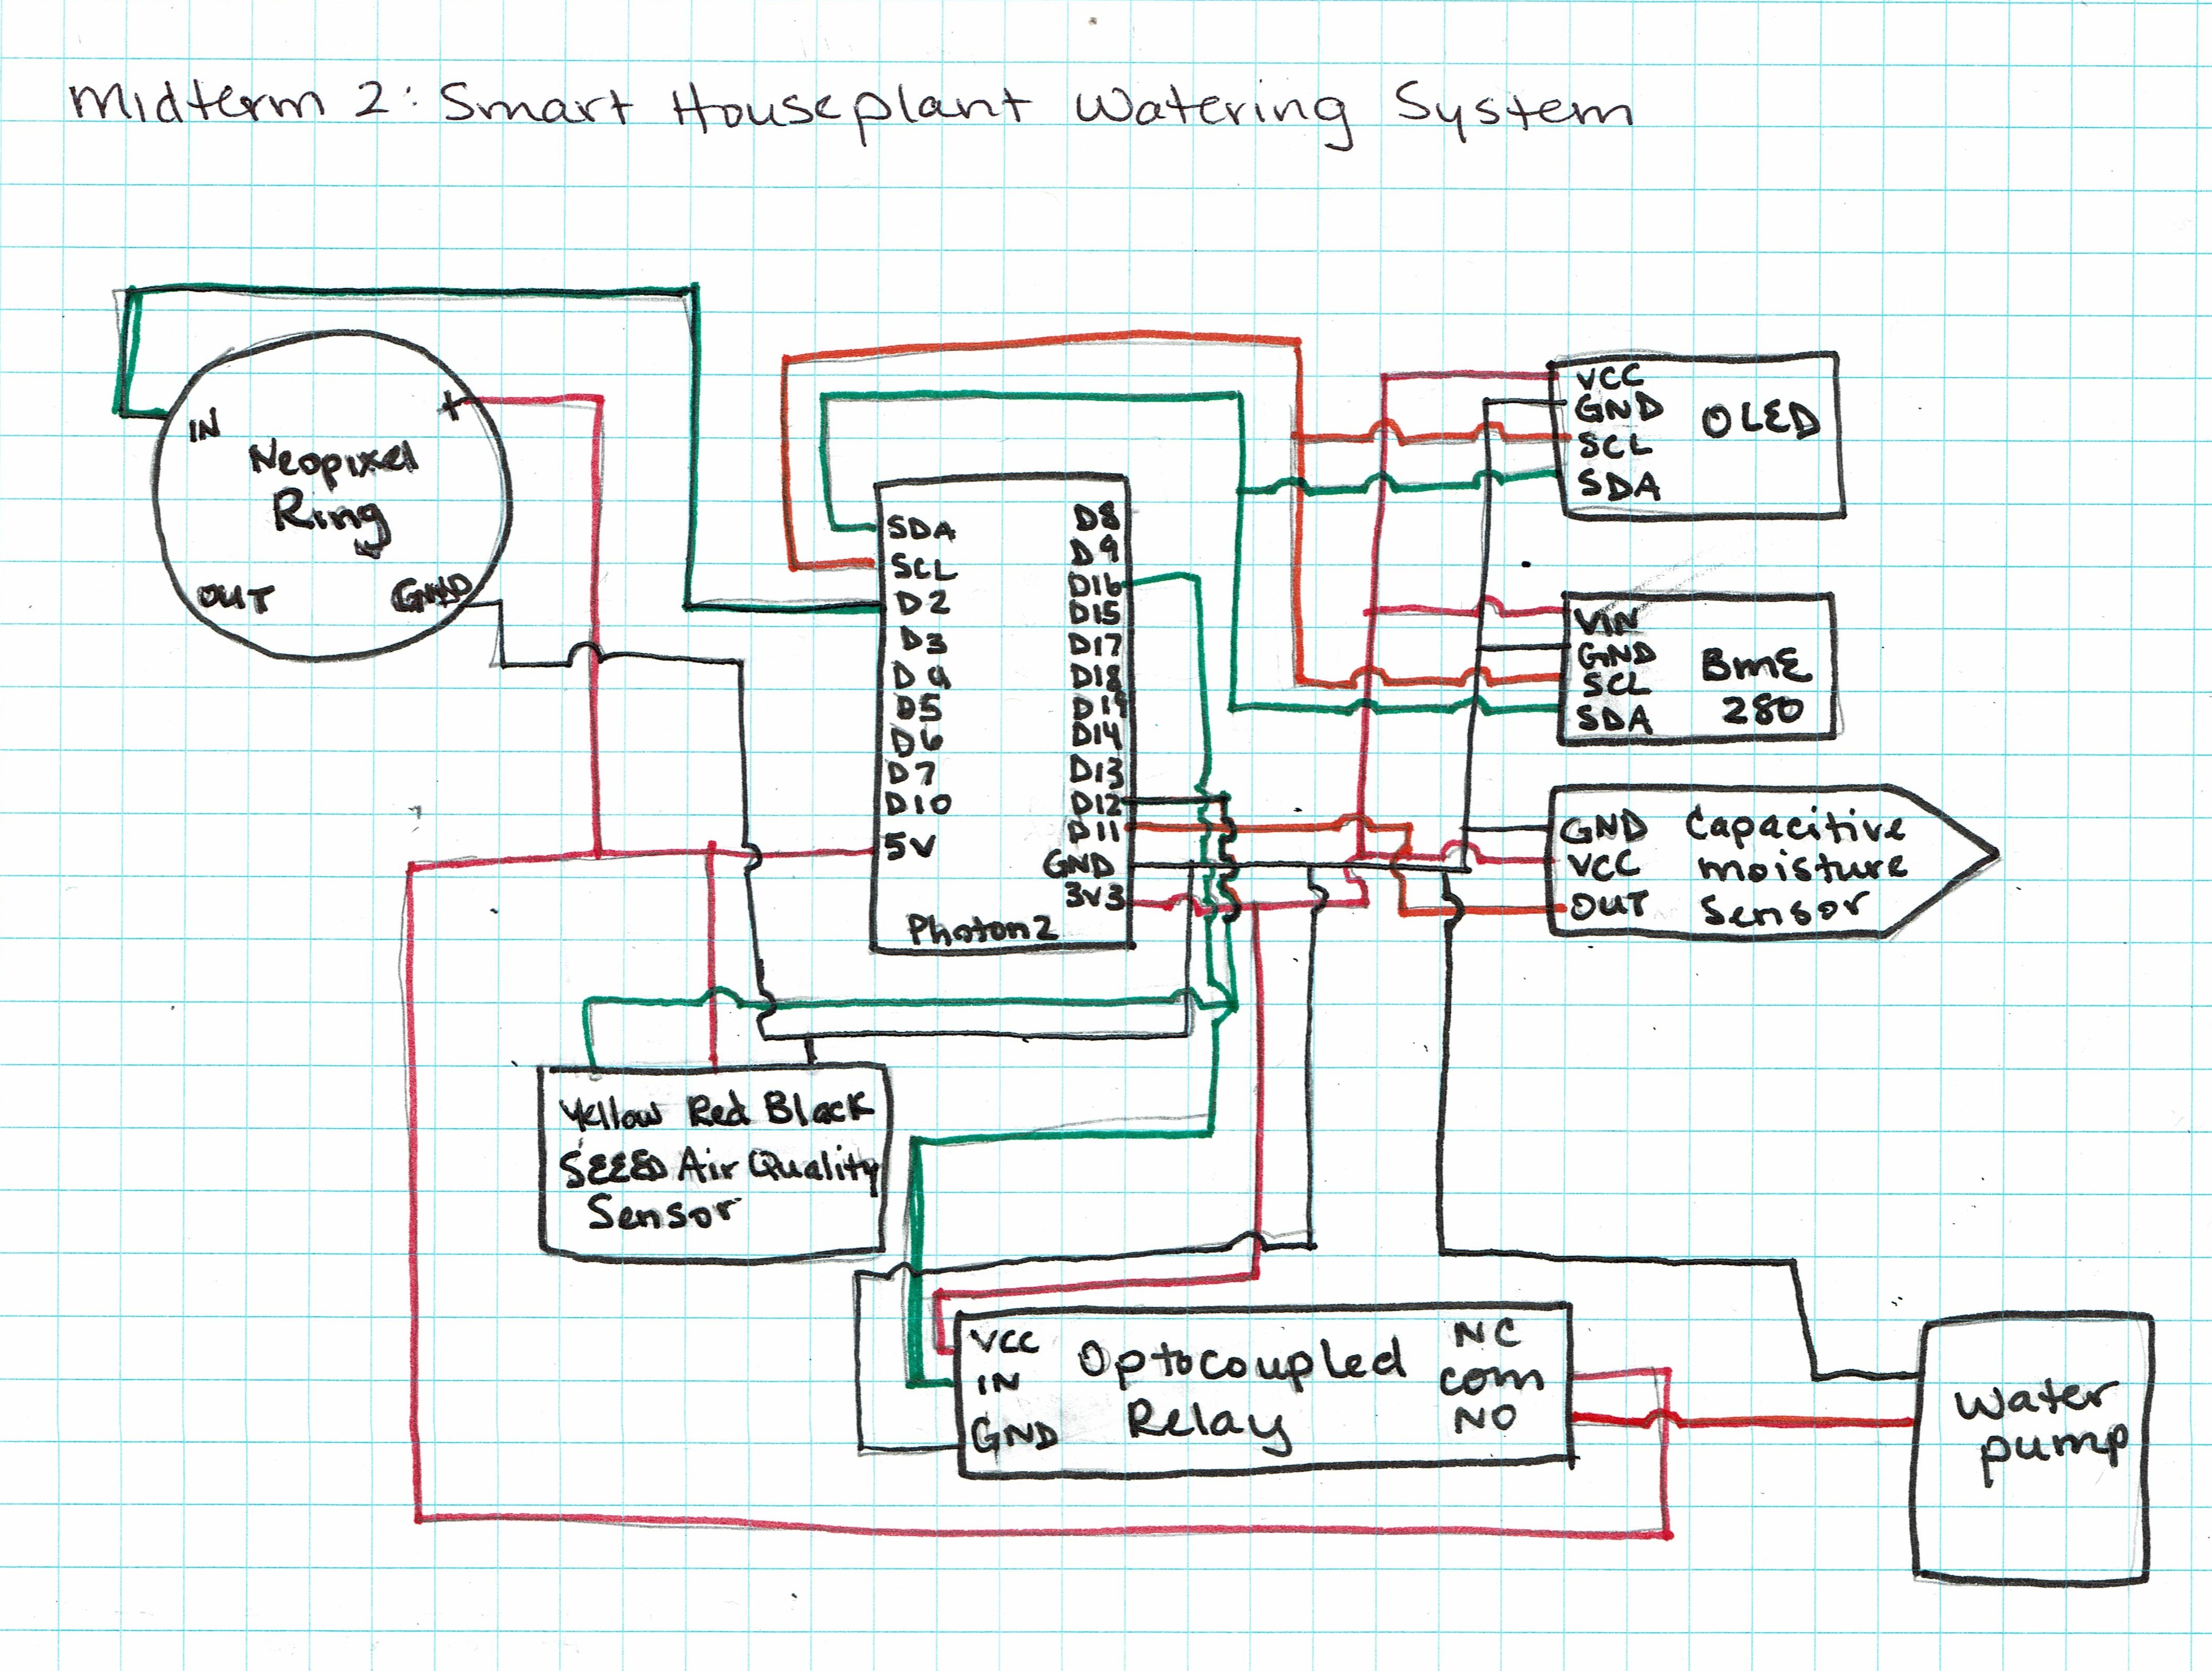 Midterm 2: Smart Houseplant Watering System
IN
+
Neopixel
Ring
OUT
GND
SDA
SCL
D2
D3
D4
D5
D6
D7
D10
5V
D8
D9
D16
D15
D17
D18
D19
D14
D13
D12
D11
GND
3V3
Photon2
VCC
GND
SCL
SDA
OLED
VIN
GND
SCL
SDA
BME
280
GND
VCC
OUT
Capacitive
Moisture
Sensor
Yellow Red Black
SEEED Air Quality
Sensor
VCC
IN
GND
Optocoupled
Relay
NC
COM
NO
Water
pump